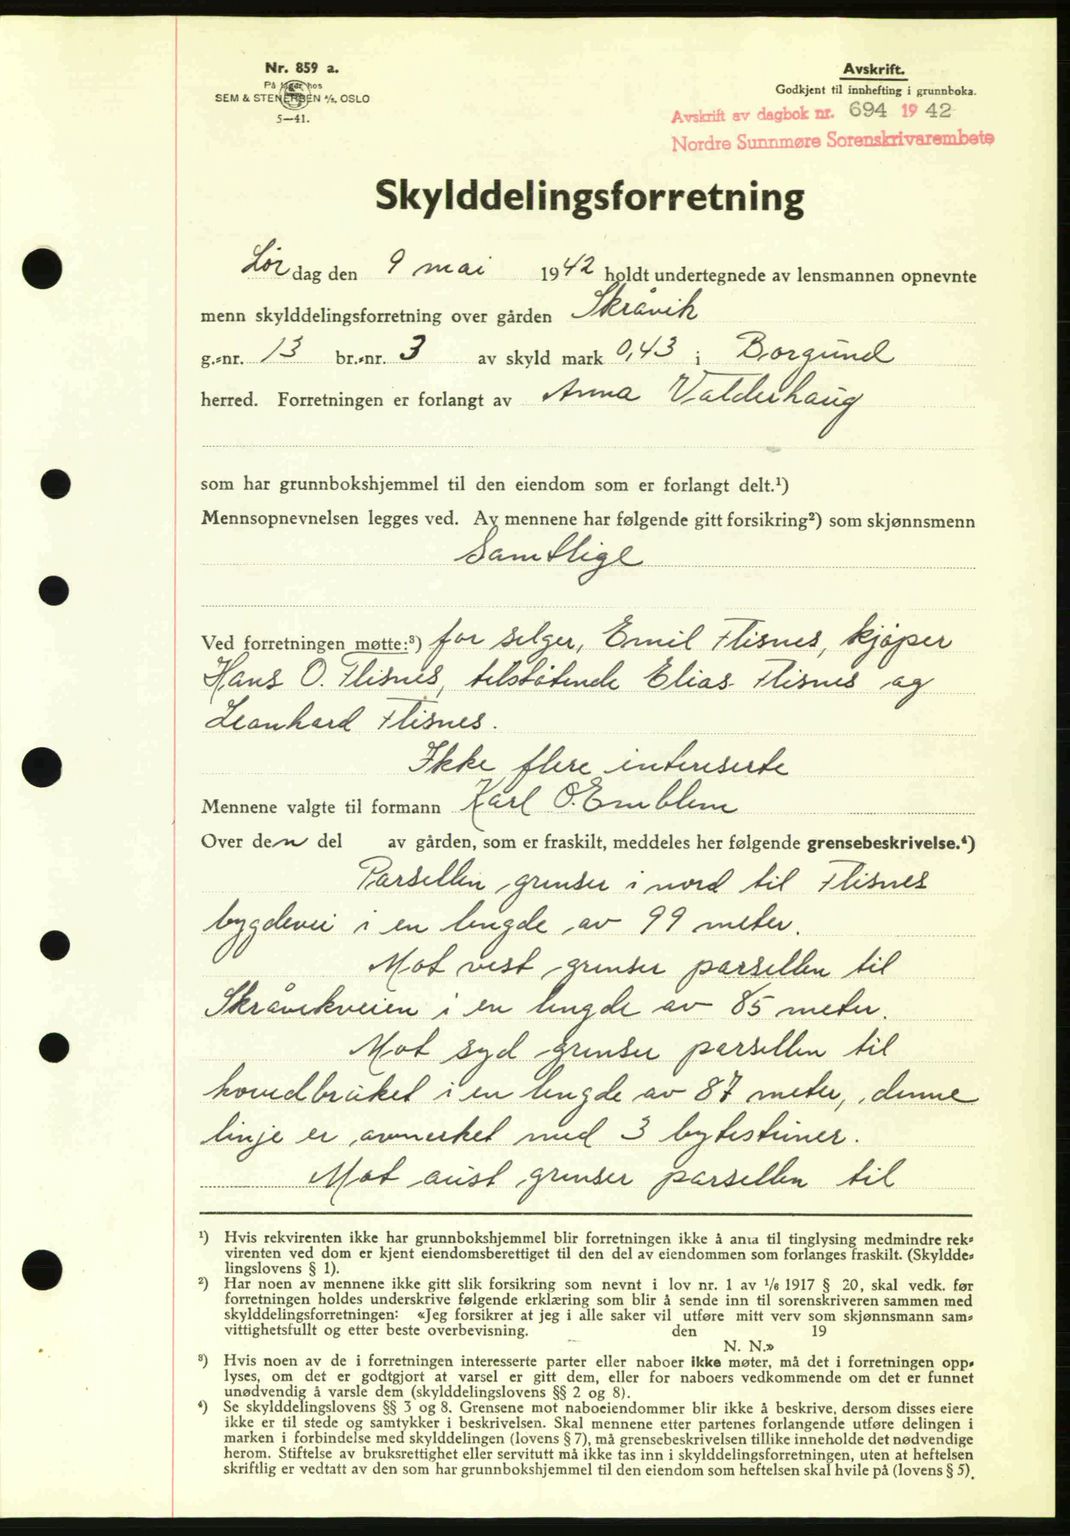 Nr. 859 a.
På lager hos
SEM & STENERSEN A/S. OSLO
5—41.
Avskrift.
Godkjent til innhefting i grunnboka.
Avskrift av dagbok nr. 694 1942
Nordre Sunnmøre Sorenskrivarembete
Skylddelingsforretning
Lør dag den 9 mai 1942 holdt undertegnede av lensmannen opnevnte
menn skylddelingsforretning over gården Skråvik
g.-nr. 13 br.-nr. 3 av skyld mark 0,43 i Borgund
herred. Forretningen er forlangt av Anna Valderhaug
som har grunnbokshjemmel til den eiendom som er forlangt delt.¹)
Mennsopnevnelsen legges ved. Av mennene har følgende gitt forsikring²) som skjønnsmenn
Samtlige
Ved forretningen møtte:³) for selger, Emil Flisnes, kjøper
Hans O. Flisnes, tilstøtende Elias Flisnes og
Leonhard Flisnes.
Ikke flere intereserte
Mennene valgte til formann Karl O. Emblem
Over den del av gården, som er fraskilt, meddeles her følgende grensebeskrivelse.⁴)
Parsellen grenser i nord til Flisnes
bygdevei i en lengde av 99 meter.
Mot vest grenser parsellen til
Skråvikveien i en lengde av 85 meter.
Mot syd grenser parsellen til
hovedbruket i en lengde av 87 meter, denne
linje er avmerket med 3 bytesteiner.
Mot aust grenser parsellen til
¹) Hvis rekvirenten ikke har grunnbokshjemmel blir forretningen ikke å anta til tinglysing medmindre rek-
virenten ved dom er kjent eiendomsberettiget til den del av eiendommen som forlanges fraskilt. (Skyldde-
lingslovens § 1).
²) Har noen av mennene ikke gitt slik forsikring som nevnt i lov nr. 1 av ¹/₆ 1917 § 20, skal vedk. før
forretningen holdes underskrive følgende erklæring som blir å sende inn til sorenskriveren sammen med
skylddelingsforretningen: «Jeg forsikrer at jeg i alle saker vil utføre mitt verv som skjønnsmann sam-
vittighetsfullt og etter beste overbevisning. den 19
N. N.»
³) Hvis noen av de i forretningen interesserte parter eller naboer ikke møter, må det i forretningen opp-
lyses, om det er godtgjort at varsel er gitt dem, eller for naboers vedkommende om det er funnet
unødvendig å varsle dem (skylddelingslovens §§ 2 og 8).
⁴) Se skylddelingslovens §§ 3 og 8. Grensene mot naboeiendommer blir ikke å beskrive, dersom disses eiere
ikke er til stede og samtykker i beskrivelsen. Skal mennene etter partenes forlangende utføre delingen i
marken i forbindelse med skylddelingen (lovens § 7), må grensebeskrivelsen tillike inneholde det nødvendige
herom. Stiftelse av bruksrettighet eller servitutt må ikke tas inn i skylddelingsforretningen, uten at heftelsen
skriftlig er vedtatt av den som har grunnbokshjemmel til den eiendom som heftelsen skal hvile på (lovens § 5).